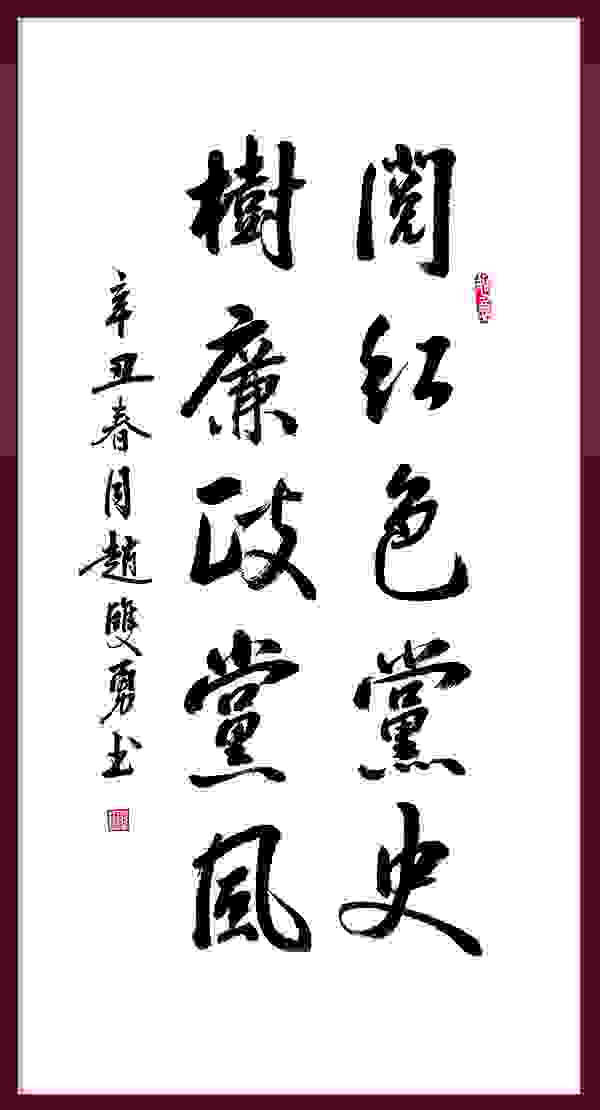 閱紅色黨史
樹廉政黨風
辛丑春月趙雙勇书